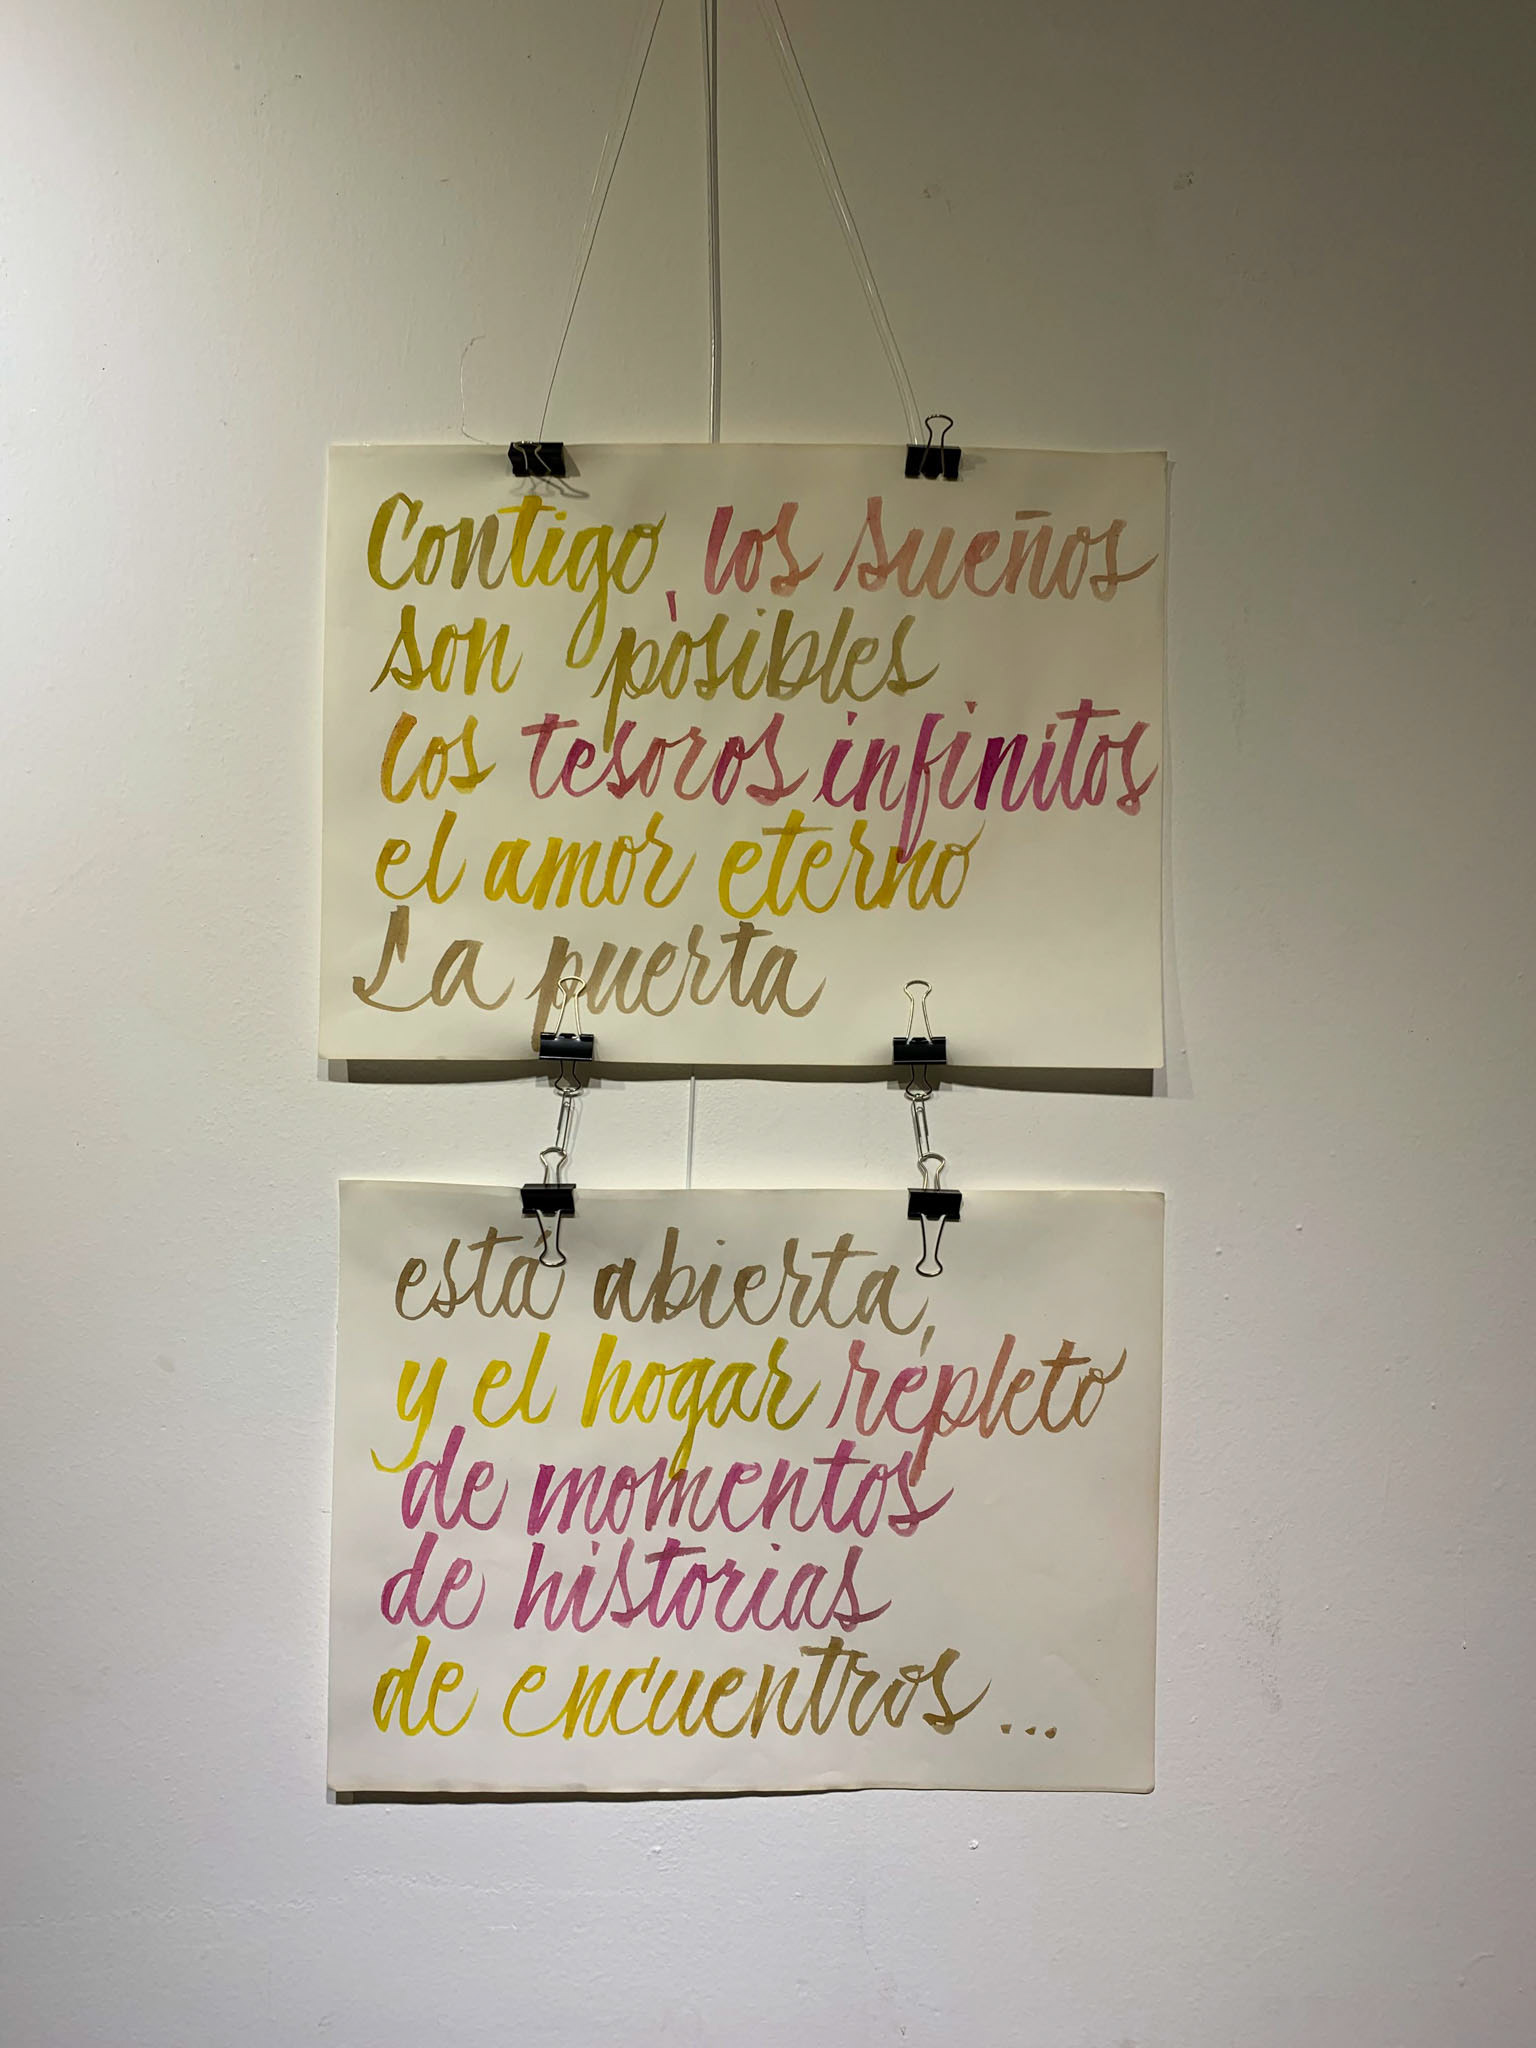 Contigo, los sueños
son posibles
los tesoros infinitos
el amor eterno
La puerta
está abierta,
y el hogar repleto
de momentos
de historias
de encuentros...